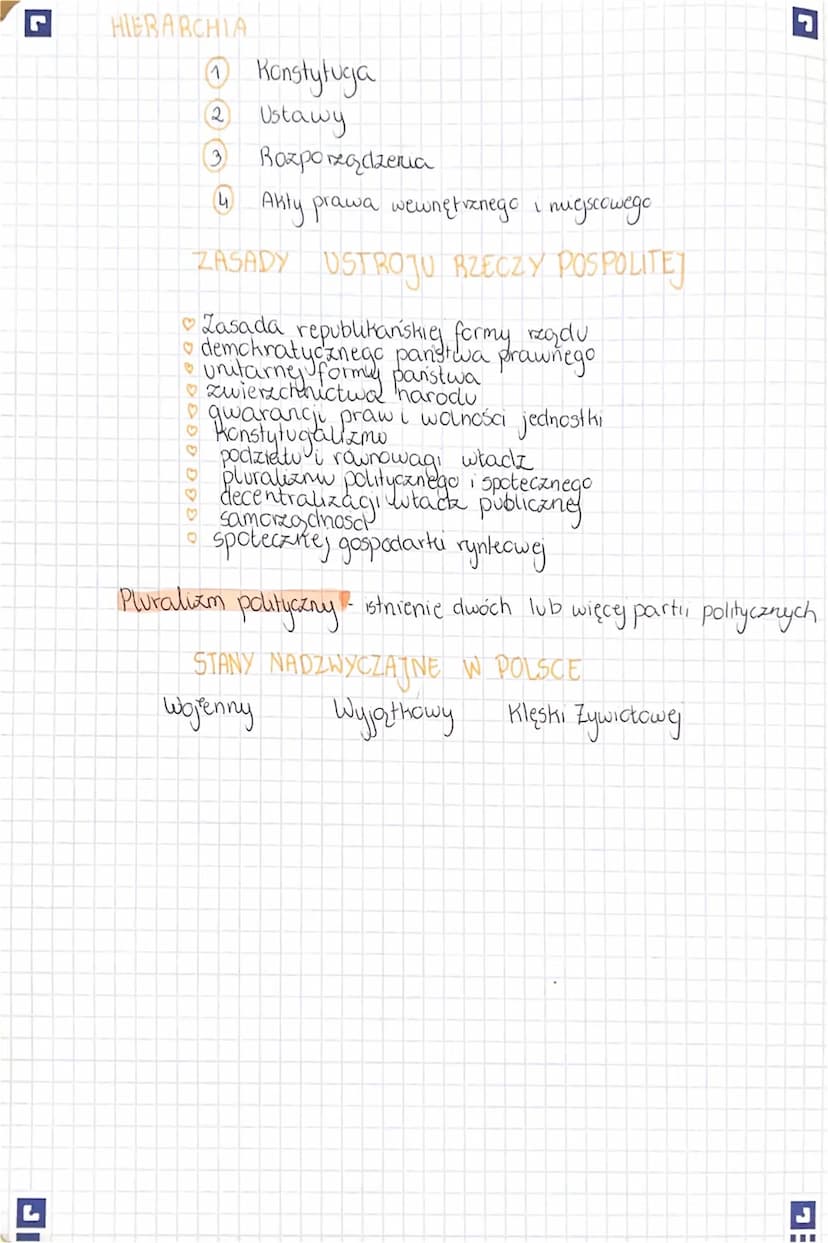 HIERARCHIA
1 Konstytucja
2 Ustawy
3 Rozporządzenia
4 Akty prawa wewnętrznego i miejscowego
ZASADY USTROJU RZECZY POSPOLITEJ
Zasada republikańskiej formy rządu
demokratycznego państwa prawnego
unitarnej formy państwa
zwierzchnictwa narodu
gwarancji praw i wolności jednostki
Konstytucjalizmu
podziału i równowagi władz
pluralizmu politycznego i społecznego
decentralizacji władz publicznej
samorządności
społecznej gospodarki rynkowej
Pluralizm polityczny - istnienie dwóch lub więcej partii politycznych
STANY NADZWYCZAJNE W POLSCE
Wojenny Wyjątkowy Klęski Żywiołowej